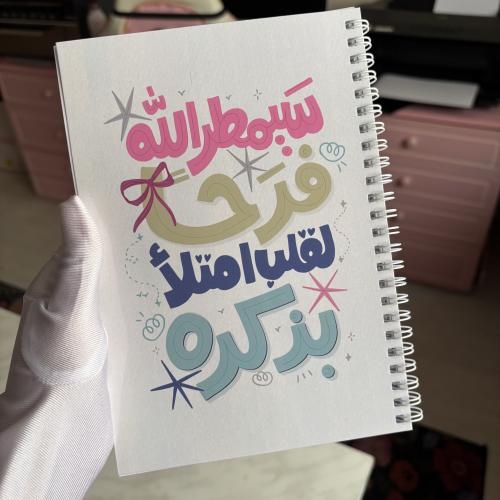 سيمطر الله
فرحًا
لقلب امتلأ
بذكره